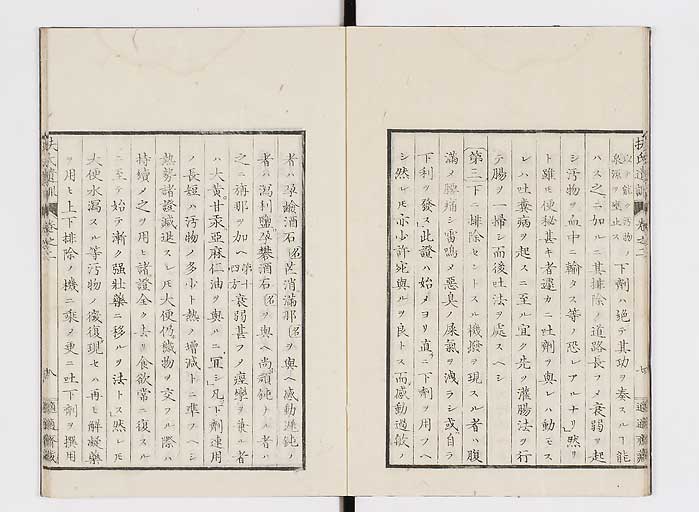 扶氏遺訓 卷之二 七 適適齋藏
以テ能ク汚物ノ
泉源ヲ壅止ス
下劑ハ絶テ其功ヲ奏スルヿ能
ハス之ニ加ルニ其排除ノ道路長フメ衰弱ヲ起
シ汚物ヲ血中ニ輸タス等ノ恐レアルナリ然リ
ト雖モ便秘甚キ者遽カニ吐劑ヲ與レハ動モス
レハ吐糞病ヲ起スニ至ル宜ク先ツ灌腸法ヲ行
テ腸ヲ一掃シ而後吐法ヲ處スヘシ
第三下ニ排除セントスル機撥ヲ現スル者ハ腹
滿メ腰痛シ雷鳴メ悪臭ノ屎氣ヲ洩ラシ或自ラ
下利ヲ發ス此證ハ始メヨリ直ニ下劑ヲ用フヘ
シ然レモ亦少許宛與ルヲ良トス而感動過敏ノ
者ハ孕鹼酒石名芒消滿那名ヲ與ヘ感動遲鈍ノ
者ハ瀉利鹽孕礬酒石名ヲ與ヘ尚頑鈍ナル者ハ
之ニ旃那ヲ加ヘ第十四方衰弱甚フメ痙攣ヲ兼ル者
ハ大黄甘汞亜麻仁油ヲ與ルニ宜シ凡下劑連用
ノ長短ハ汚物ノ多少ト熱ノ増減トニ準フヘシ
熱勢諸證減退スレモ大便仍穢物ヲ交フル際ハ
持續メ之ヲ用ヒ諸證全ク去リ食欲常ニ復スル
ニ至テ始テ漸ク強壮藥ニ移ルヲ法トス然レモ
大便水瀉スル等汚物ノ徴復現セハ再ヒ解凝藥
ヲ用ヒ上下排除ノ機ニ乘メ更ニ吐下劑ヲ撰用
扶氏遺訓 卷之二 八 適適齋藏